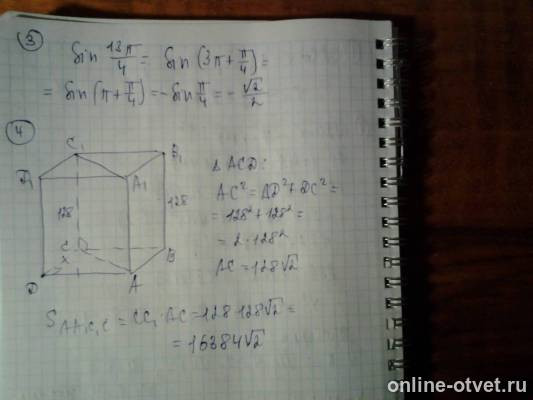 ③
sin 13π/4 = sin (3π + π/4) =
= sin (π + π/4) = - sin π/4 = - √2/2
④
C₁ B₁
D₁ A₁
128 128
C B
x
D A
Δ ACD:
AC² = AD² + DC² =
= 128² + 128² =
= 2 · 128²
AC = 128√2
S_AA₁C₁C = CC₁ · AC = 128 · 128√2 =
= 16384√2
online-otvet.ru